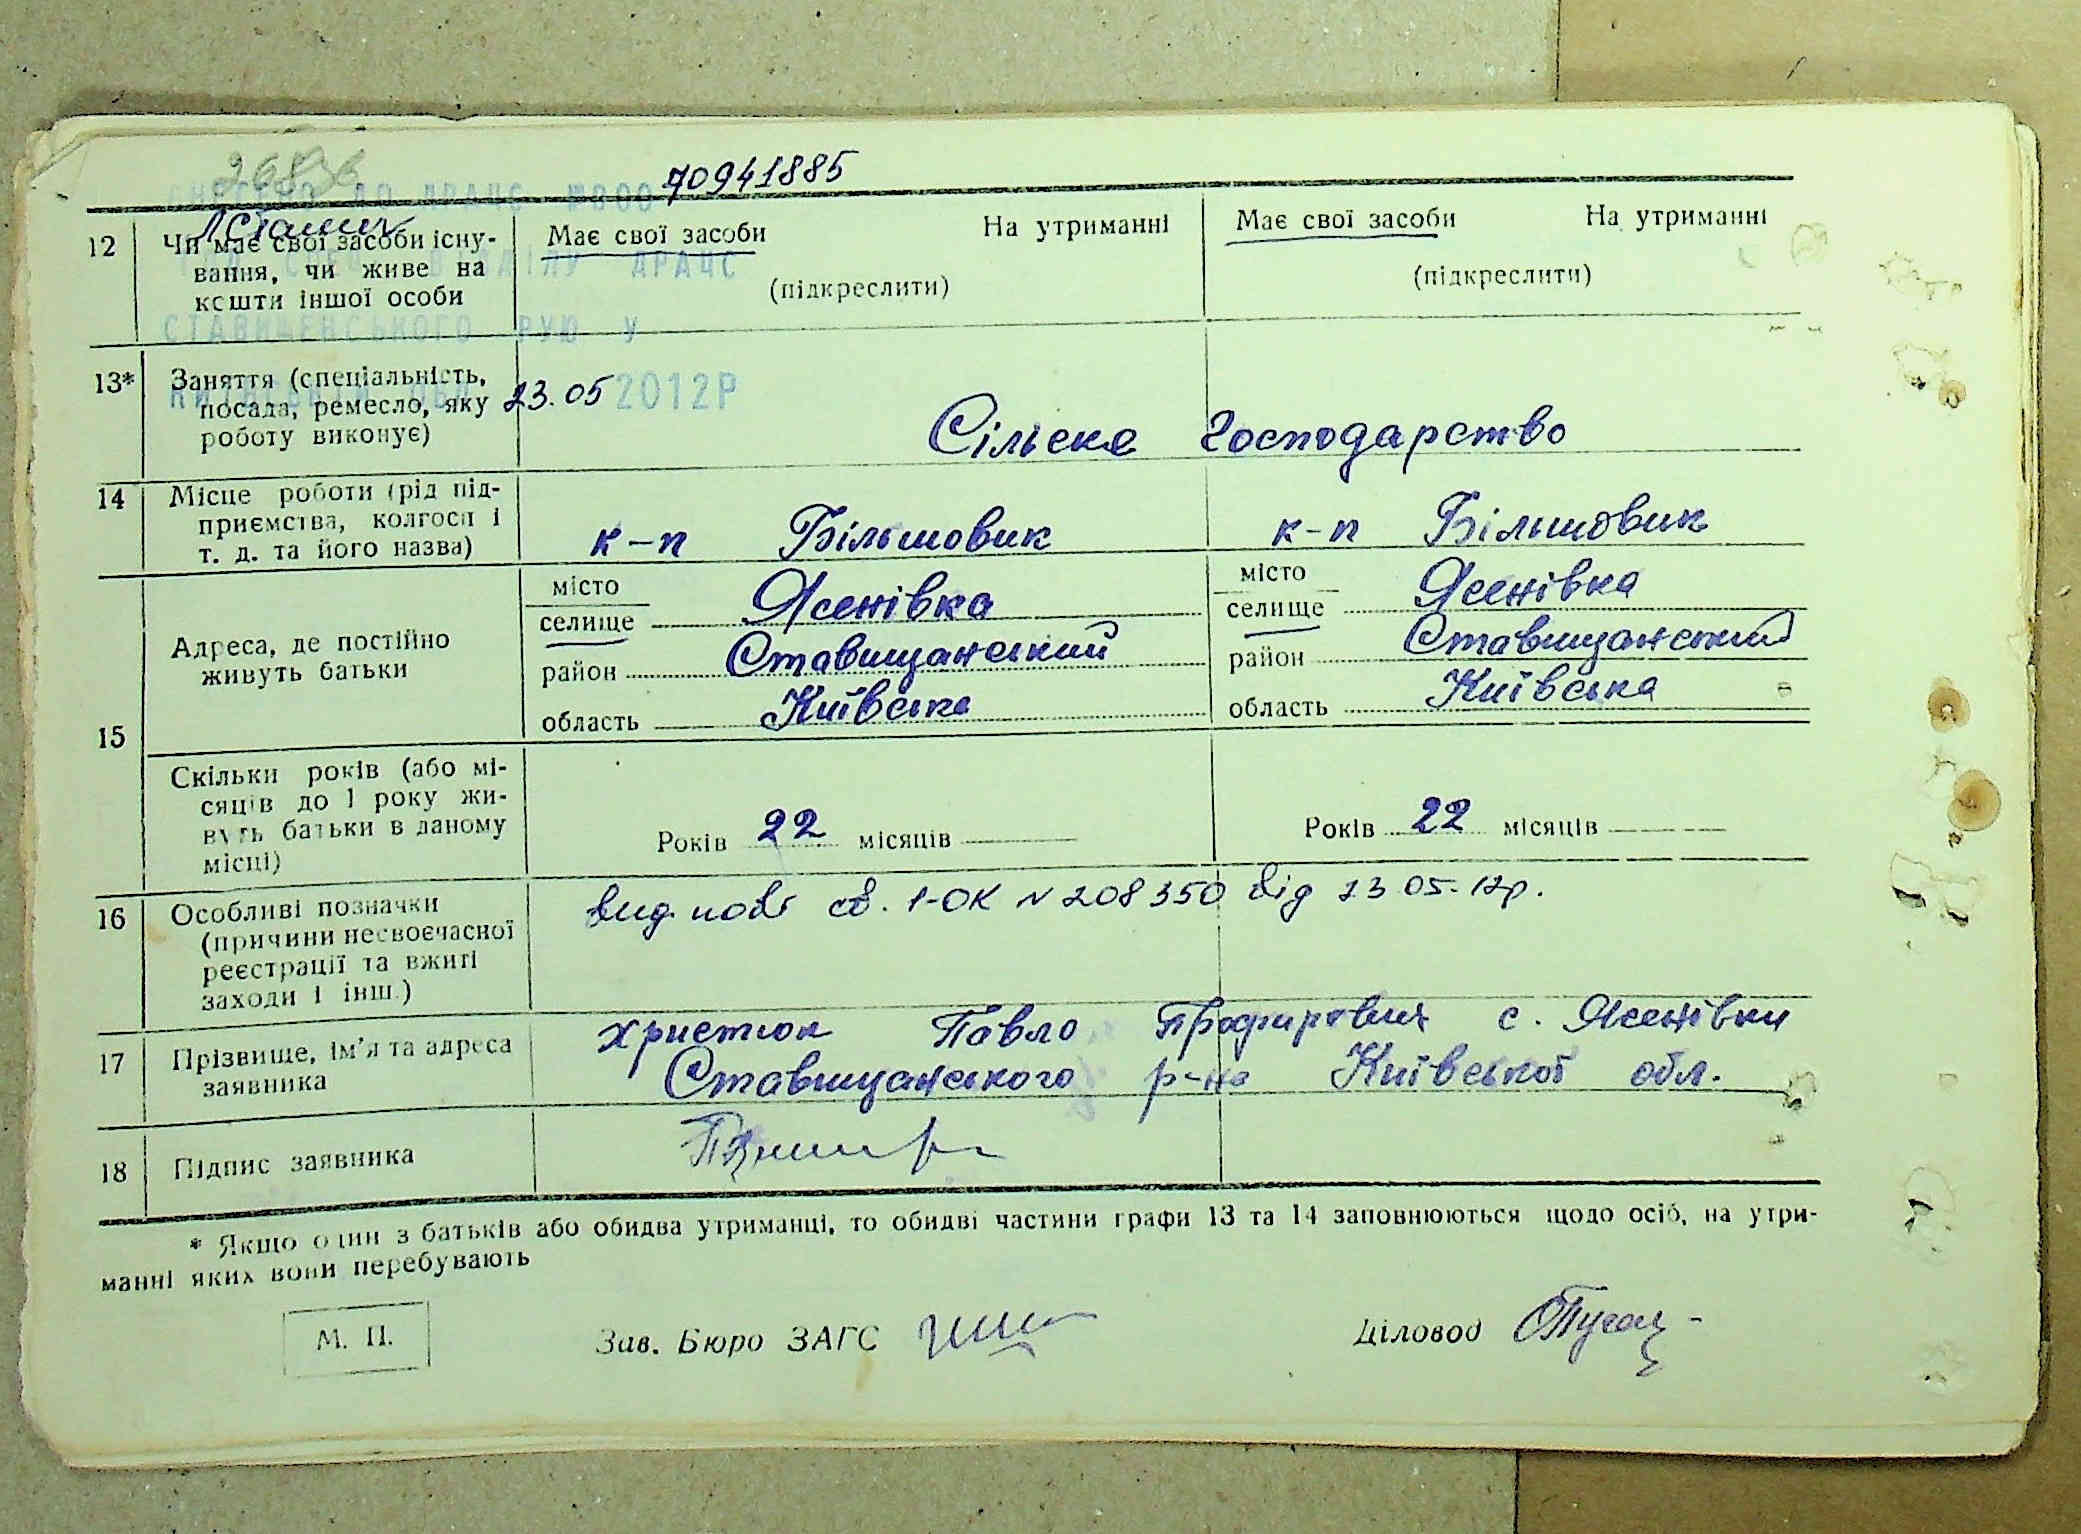 26836
70941885
ВНЕСЕНО ДО ДРАЦС №800
12 Чи має свої засоби існу- Має свої засоби На утриманні Має свої засоби На утриманні
вання, чи живе на ВІДДІЛУ ДРАЦС
кошти іншої особи (підкреслити) (підкреслити)
СТАВИЩЕНСЬКОГО РУЮ У
13* Заняття (спеціальність,
посада, ремесло, яку 23.05 2012Р
роботу виконує) Сільске господарство
14 Місце роботи (рід під-
приємства, колгосп і к-п Більшовик к-п Більшовик
т. д. та його назва)
місто місто
селище Ясенівка селище Ясенівка
15 Адреса, де постійно
живуть батьки район Ставищанський район Ставищанський
область Київська область Київська
Скільки років (або мі-
сяців до 1 року жи-
вуть батьки в даному Років 22 місяців Років 22 місяців
місці)
16 Особливі позначки вид. нове св. 1-ОК N 208350 від 23 05. 12р.
(причини несвоєчасної
реєстрації та вжиті
заходи і інш.)
17 Прізвище, ім'я та адреса Христюк Павло Профирович с. Ясенівки
заявника Ставищанського р-на Київської обл.
18 Підпис заявника
* Якщо один з батьків або обидва утриманці, то обидві частини графи 13 та 14 заповнюються щодо осіб, на утри-
манні яких вони перебувають
М. П. Зав. Бюро ЗАГС Діловод